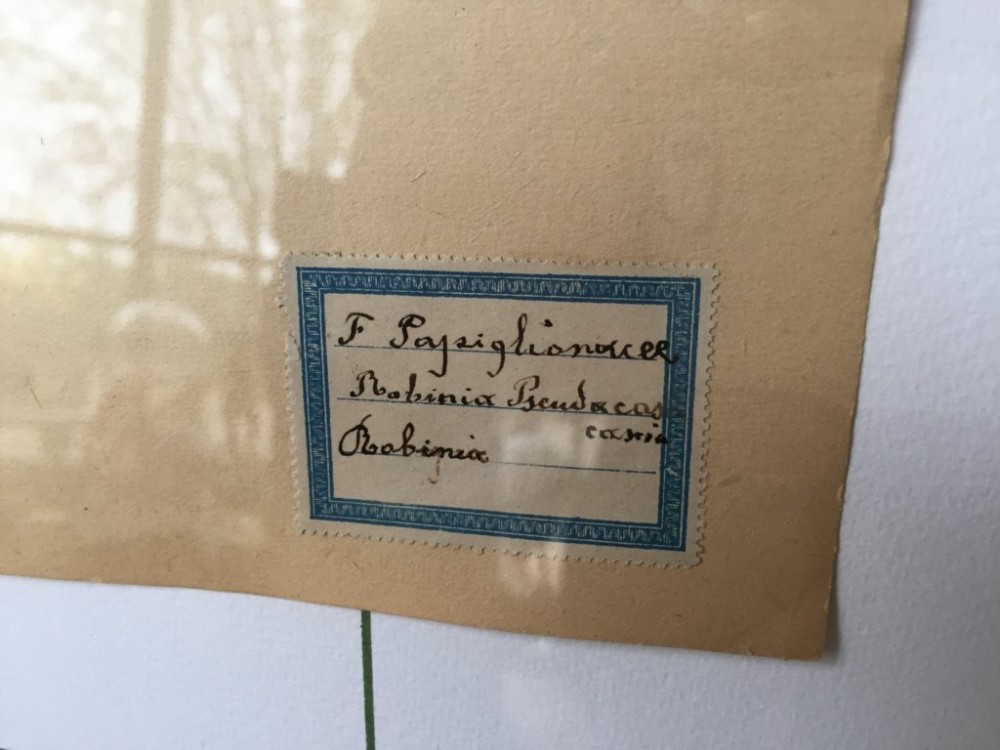 F Papiglionacee
Robinia Pseudacas
casia
Robinia